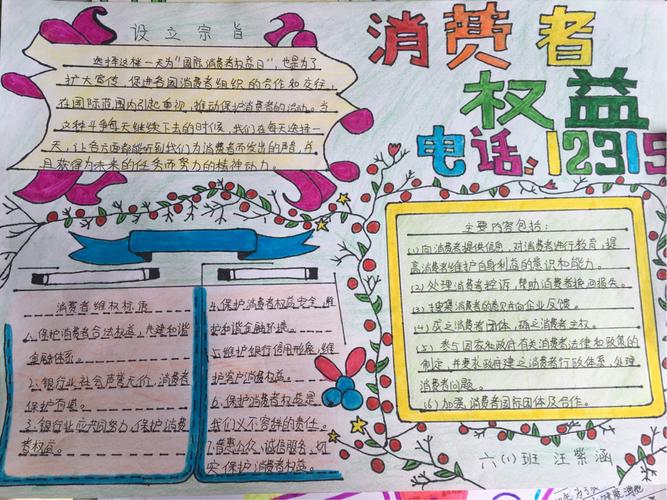 设立宗旨
选择这样一天为"国际消费者权益日",也是为了
扩大宣传,促进各国消费者组织的合作和交往,
在国际范围内引起重视,推动保护消费者的活动。当
这种斗争每天继续下去的时候,我们在每天选择一
天,让各方面都能听到我们为消费者而发出的声音,并
且获得为未来的任务而努力的精神动力。
消费者
权益
电话:12315
消费者维权标语
1、保护消费者合法权益,共建和谐
金融体系。
2、银行业社会声誉无价,消费者
保护有责。
3、银行业应共同努力,保护消费
者权益。
4、保护消费者权益安全,维
护和谐金融环境。
5、维护银行信用形象,维
护客户消费权益。
6、保护消费者权益是
我们义不容辞的责任。
7、普惠公众、诚信服务,切
实保护消费者权益。
主要内容包括:
(1)向消费者提供信息,对消费者进行教育,提
高消费者维护自身利益的意识和能力。
(2)处理消费者投诉,帮助消费者挽回损失。
(3)搜集消费者的意见并向企业反馈。
(4)成立消费者团体,确立消费者主权。
(5)参与国家和政府有关消费者法律和政策的
制定,并要求政府建立消费者行政体系,处理
消费者问题。
(6)加强消费者国际团体及合作。
六(1)班 汪紫涵